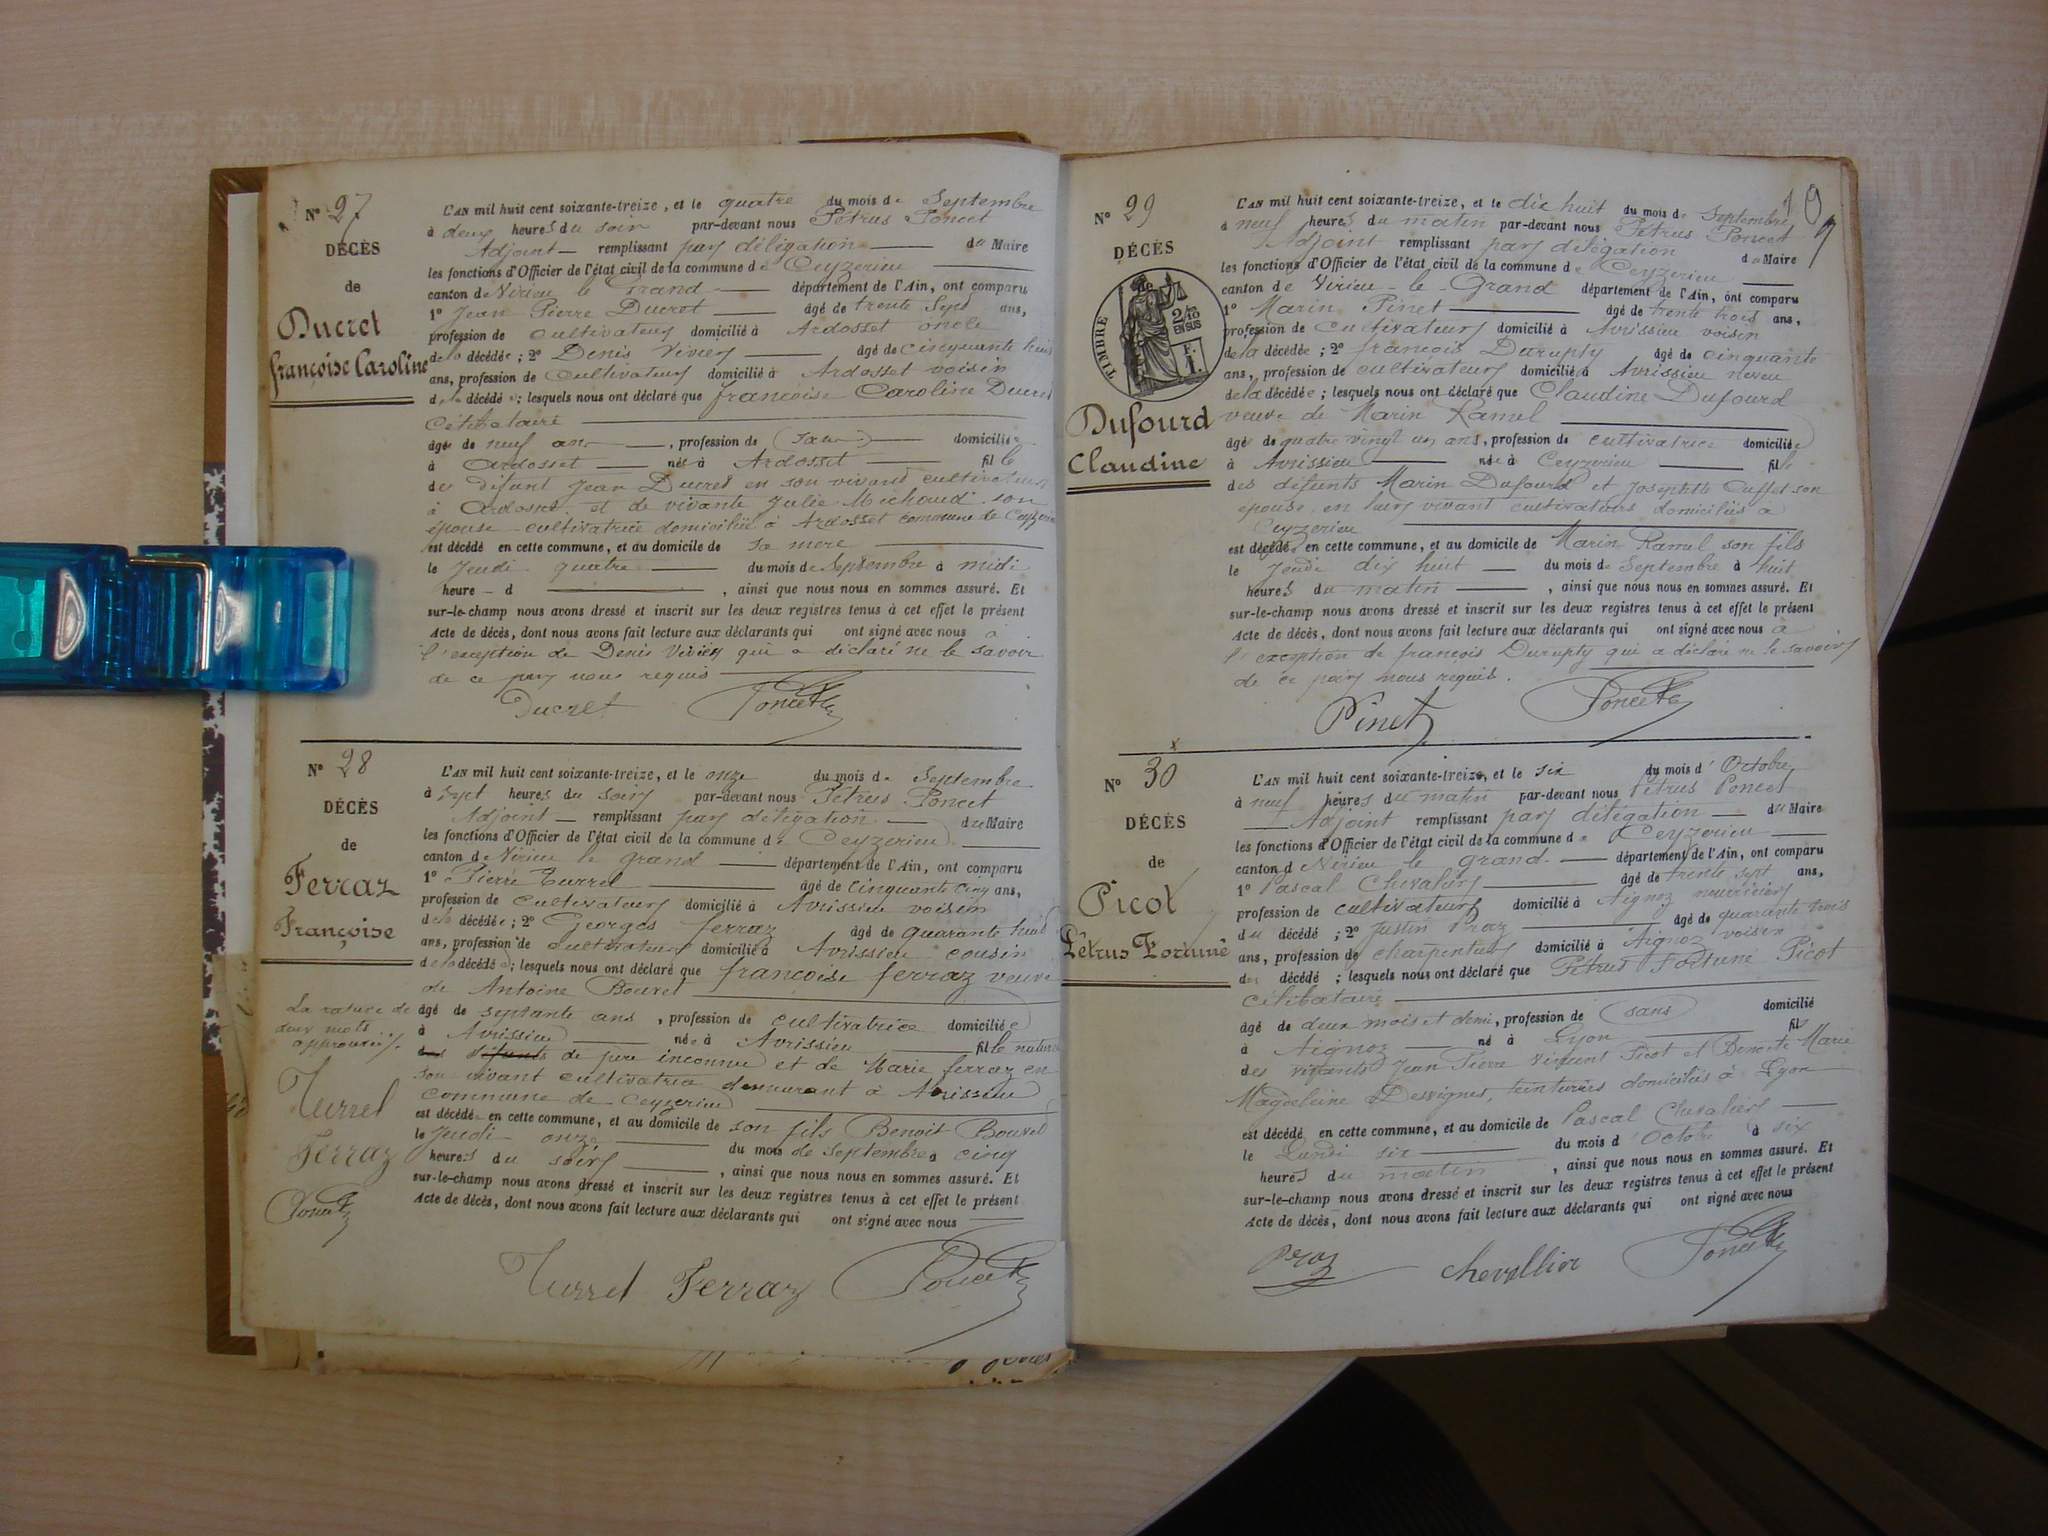 N° 27
DÉCÈS
de
Ducret
françoise Caroline
L'AN mil huit cent soixante-treize, et le quatre du mois de Septembre
à deux heures du soir par-devant nous Pétrus Poncet
Adjoint remplissant par délégation du Maire
les fonctions d'Officier de l'état civil de la commune de Ceyzerieu
canton de Virieu le Grand département de l'Ain, ont comparu
1° Jean Pierre Ducret âgé de trente sept ans,
profession de cultivateur domicilié à Ardosset oncle
de la décédée ; 2° Denis Vivier âgé de cinquante huit
ans, profession de cultivateur domicilié à Ardosset voisin
de la décédée ; lesquels nous ont déclaré que françoise Caroline Ducret
célibataire
âgée de neuf ans , profession de (sans) domiciliée
à Ardosset née à Ardosset fille
de défunt Jean Ducret en son vivant cultivateur
à Ardosset et de vivante Julie Michaud son
épouse cultivatrice domiciliée à Ardosset commune de Ceyzerieu
est décédé en cette commune, et au domicile de sa mère
le Jeudi quatre du mois de Septembre à midi
heure d , ainsi que nous nous en sommes assuré. Et
sur-le-champ nous avons dressé et inscrit sur les deux registres tenus à cet effet le présent
Acte de décès, dont nous avons fait lecture aux déclarants qui ont signé avec nous à
l'exception de Denis Vivier qui a déclaré ne le savoir
de ce par nous requis
Ducret Poncet
N° 28
DÉCÈS
de
Ferraz
Françoise
L'AN mil huit cent soixante-treize, et le onze du mois de Septembre
à sept heures du soir par-devant nous Pétrus Poncet
Adjoint remplissant par délégation du Maire
les fonctions d'Officier de l'état civil de la commune de Ceyzerieu
canton de Virieu le grand département de l'Ain, ont comparu
1° Pierre Turrel âgé de cinquante cinq ans,
profession de cultivateur domicilié à Avrissieu voisin
de la décédée ; 2° Georges ferraz âgé de quarante huit
ans, profession de cultivateur domicilié à Avrissieu cousin
de la décédée ; lesquels nous ont déclaré que françoise ferraz veuve
de Antoine Bouvet
âgé de septante ans , profession de cultivatrice domiciliée
à Avrissieu née à Avrissieu fille naturelle
des défunts de père inconnu et de Marie ferraz en
son vivant cultivatrice demeurant à Avrissieu
commune de Ceyzerieu
est décédée en cette commune, et au domicile de son fils Benoit Bouvet
le Jeudi onze du mois de Septembre à cinq
heures du soir , ainsi que nous nous en sommes assuré. Et
sur-le-champ nous avons dressé et inscrit sur les deux registres tenus à cet effet le présent
Acte de décès, dont nous avons fait lecture aux déclarants qui ont signé avec nous
La rature de
deux mots
approuvée.
Turrel
Ferraz
Poncet
Turrel Ferraz Poncet
19
N° 29
DÉCÈS
de
TIMBRE
2/10
EN SUS
F.
1.
Dufourd
Claudine
L'AN mil huit cent soixante-treize, et le dix huit du mois de Septembre
à neuf heures du matin par-devant nous Pétrus Poncet
Adjoint remplissant par délégation du Maire
les fonctions d'Officier de l'état civil de la commune de Ceyzerieu
canton de Virieu-le-Grand département de l'Ain, ont comparu
1° Marin Pinet âgé de trente trois ans,
profession de cultivateur domicilié à Avrissieu voisin
de la décédée ; 2° françois Durupty âgé de cinquante
ans, profession de cultivateur domicilié à Avrissieu neveu
de la décédée ; lesquels nous ont déclaré que Claudine Dufourd
veuve de Marin Ramel
âgé de quatre vingt un ans, profession de cultivatrice domiciliée
à Avrissieu née à Ceyzerieu fille
des défunts Marin Dufourd et Josephte son
épouse, en leurs vivant cultivateurs domiciliés à
Ceyzerieu
est décédé en cette commune, et au domicile de Marin Ramel son fils
le Jeudi dix huit du mois de Septembre à huit
heures du matin , ainsi que nous nous en sommes assuré. Et
sur-le-champ nous avons dressé et inscrit sur les deux registres tenus à cet effet le présent
Acte de décès, dont nous avons fait lecture aux déclarants qui ont signé avec nous à
l'exception de françois Durupty qui a déclaré ne le savoir
de ce par nous requis.
Pinet Poncet
N° 30
DÉCÈS
de
Picot
Pétrus Fortuné
L'AN mil huit cent soixante-treize, et le six du mois d'Octobre
à neuf heures du matin par-devant nous Pétrus Poncet
Adjoint remplissant par délégation du Maire
les fonctions d'Officier de l'état civil de la commune de Ceyzerieu
canton de Virieu le grand département de l'Ain, ont comparu
1° Pascal Chevalier âgé de trente sept ans,
profession de cultivateur domicilié à Aignoz nourricier
du décédé ; 2° Justin Praz âgé de quarante trois
ans, profession de charpentier domicilié à Aignoz voisin
du décédé ; lesquels nous ont déclaré que Pétrus Fortuné Picot
célibataire
âgé de deux mois et demi, profession de (sans) domicilié
à Aignoz né à Lyon fils
des vivants Jean Pierre Vincent Picot et Benoite Marie
Magdeleine Dessignes, teinturiers domiciliés à Lyon
est décédé en cette commune, et au domicile de Pascal Chevalier
le Lundi six du mois d'Octobre à six
heures du matin , ainsi que nous nous en sommes assuré. Et
sur-le-champ nous avons dressé et inscrit sur les deux registres tenus à cet effet le présent
Acte de décès, dont nous avons fait lecture aux déclarants qui ont signé avec nous
Praz chevallier Poncet